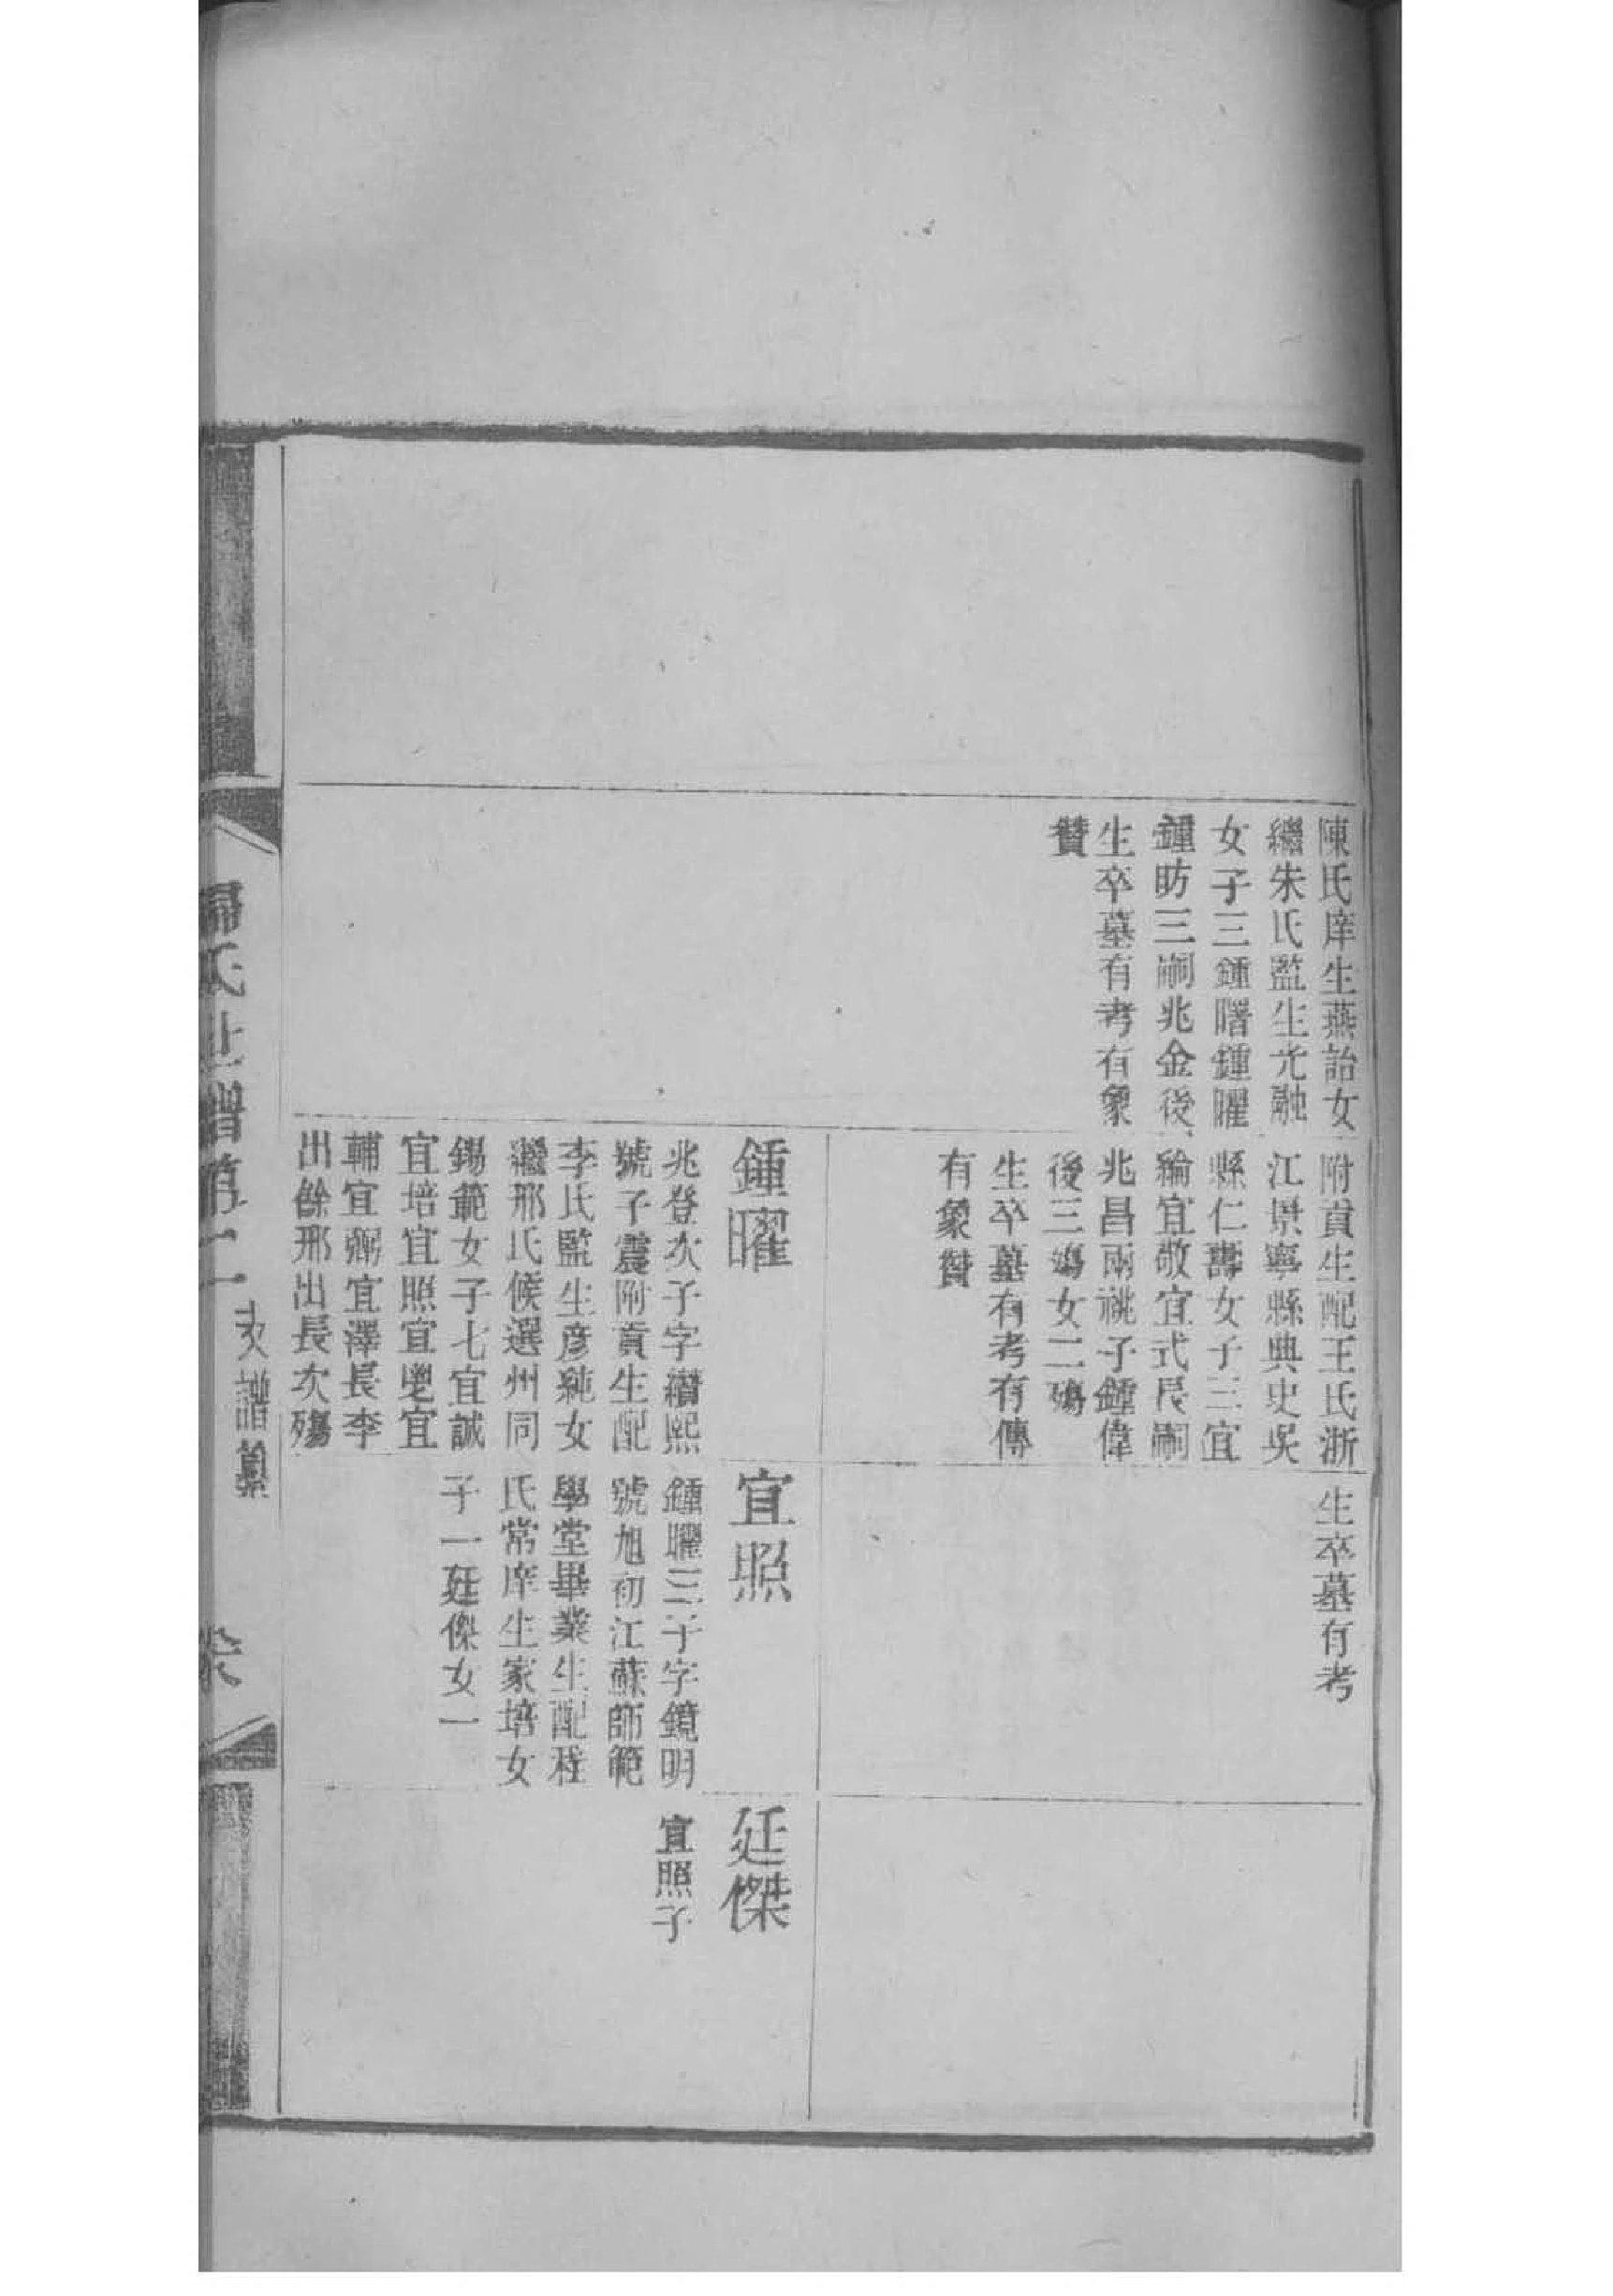 陳氏庠生燕詒女
繼朱氏監生光融
女子三鍾曙鍾曜
鍾昉三嗣兆金後
生卒墓有考有象
贊
附貢生配王氏浙
江景寧縣典史吳
縣仁壽女子三宜
綸宜敬宜式長嗣
兆昌兩祧子鍾偉
後三殤女二殤
生卒墓有考有傳
有象贊
生卒墓有考
鍾曜
兆登次子字緝熙
號子震附貢生配
李氏監生彥純女
繼邢氏候選州同
錫範女子七宜誠
宜培宜照宜鬯宜
輔宜弼宜澤長李
出餘邢出長次殤
宜照
鍾曜三子字鏡明
號旭初江蘇師範
學堂畢業生配程
氏常庠生家培女
子一廷傑女一
廷傑
宜照子
歸氏世譜第
支譜